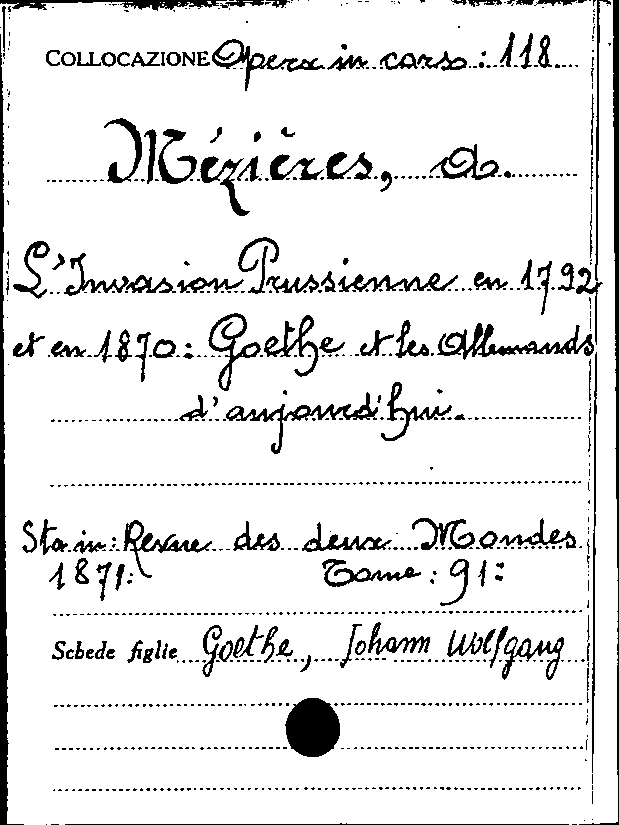 COLLOCAZIONE Opera in corso: 118.
Mézières, A.
L'Invasion Prussienne en 1792
et en 1870: Goethe et les Allemands
d'aujourd'hui.
Sta in: Revue des deux Mondes
1871. Tome: 91:
Schede figlie Goethe, Johann Wolfgang